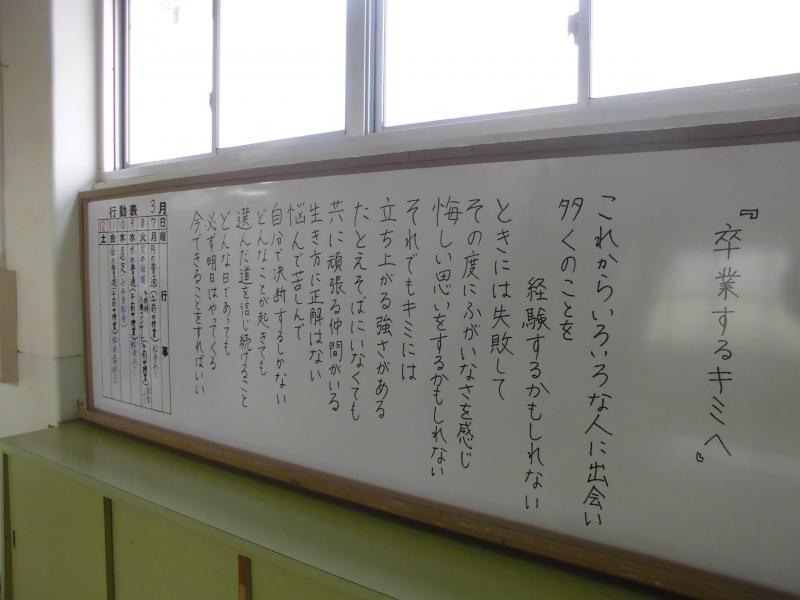 『卒業するキミへ』
これからいろいろな人に出会い
多くのことを
経験するかもしれない
ときには失敗して
その度にふがいなさを感じ
悔しい思いをするかもしれない
それでもキミには
立ち上がる強さがある
たとえそばにいなくても
共に頑張る仲間がいる
生き方に正解はない
悩んで苦しんで
自分で決断するしかない
どんなことが起きても
選んだ道を信じ続けること
どんな日であっても
必ず明日はやってくる
今できることをすればいい
3月
行動表
日 曜 行事
7 月 月の普通(午前中授業)
8 火
9 水 水の普通(午前中授業)
10 木 遠足
11 金 金の普通(午前中授業)
12 土